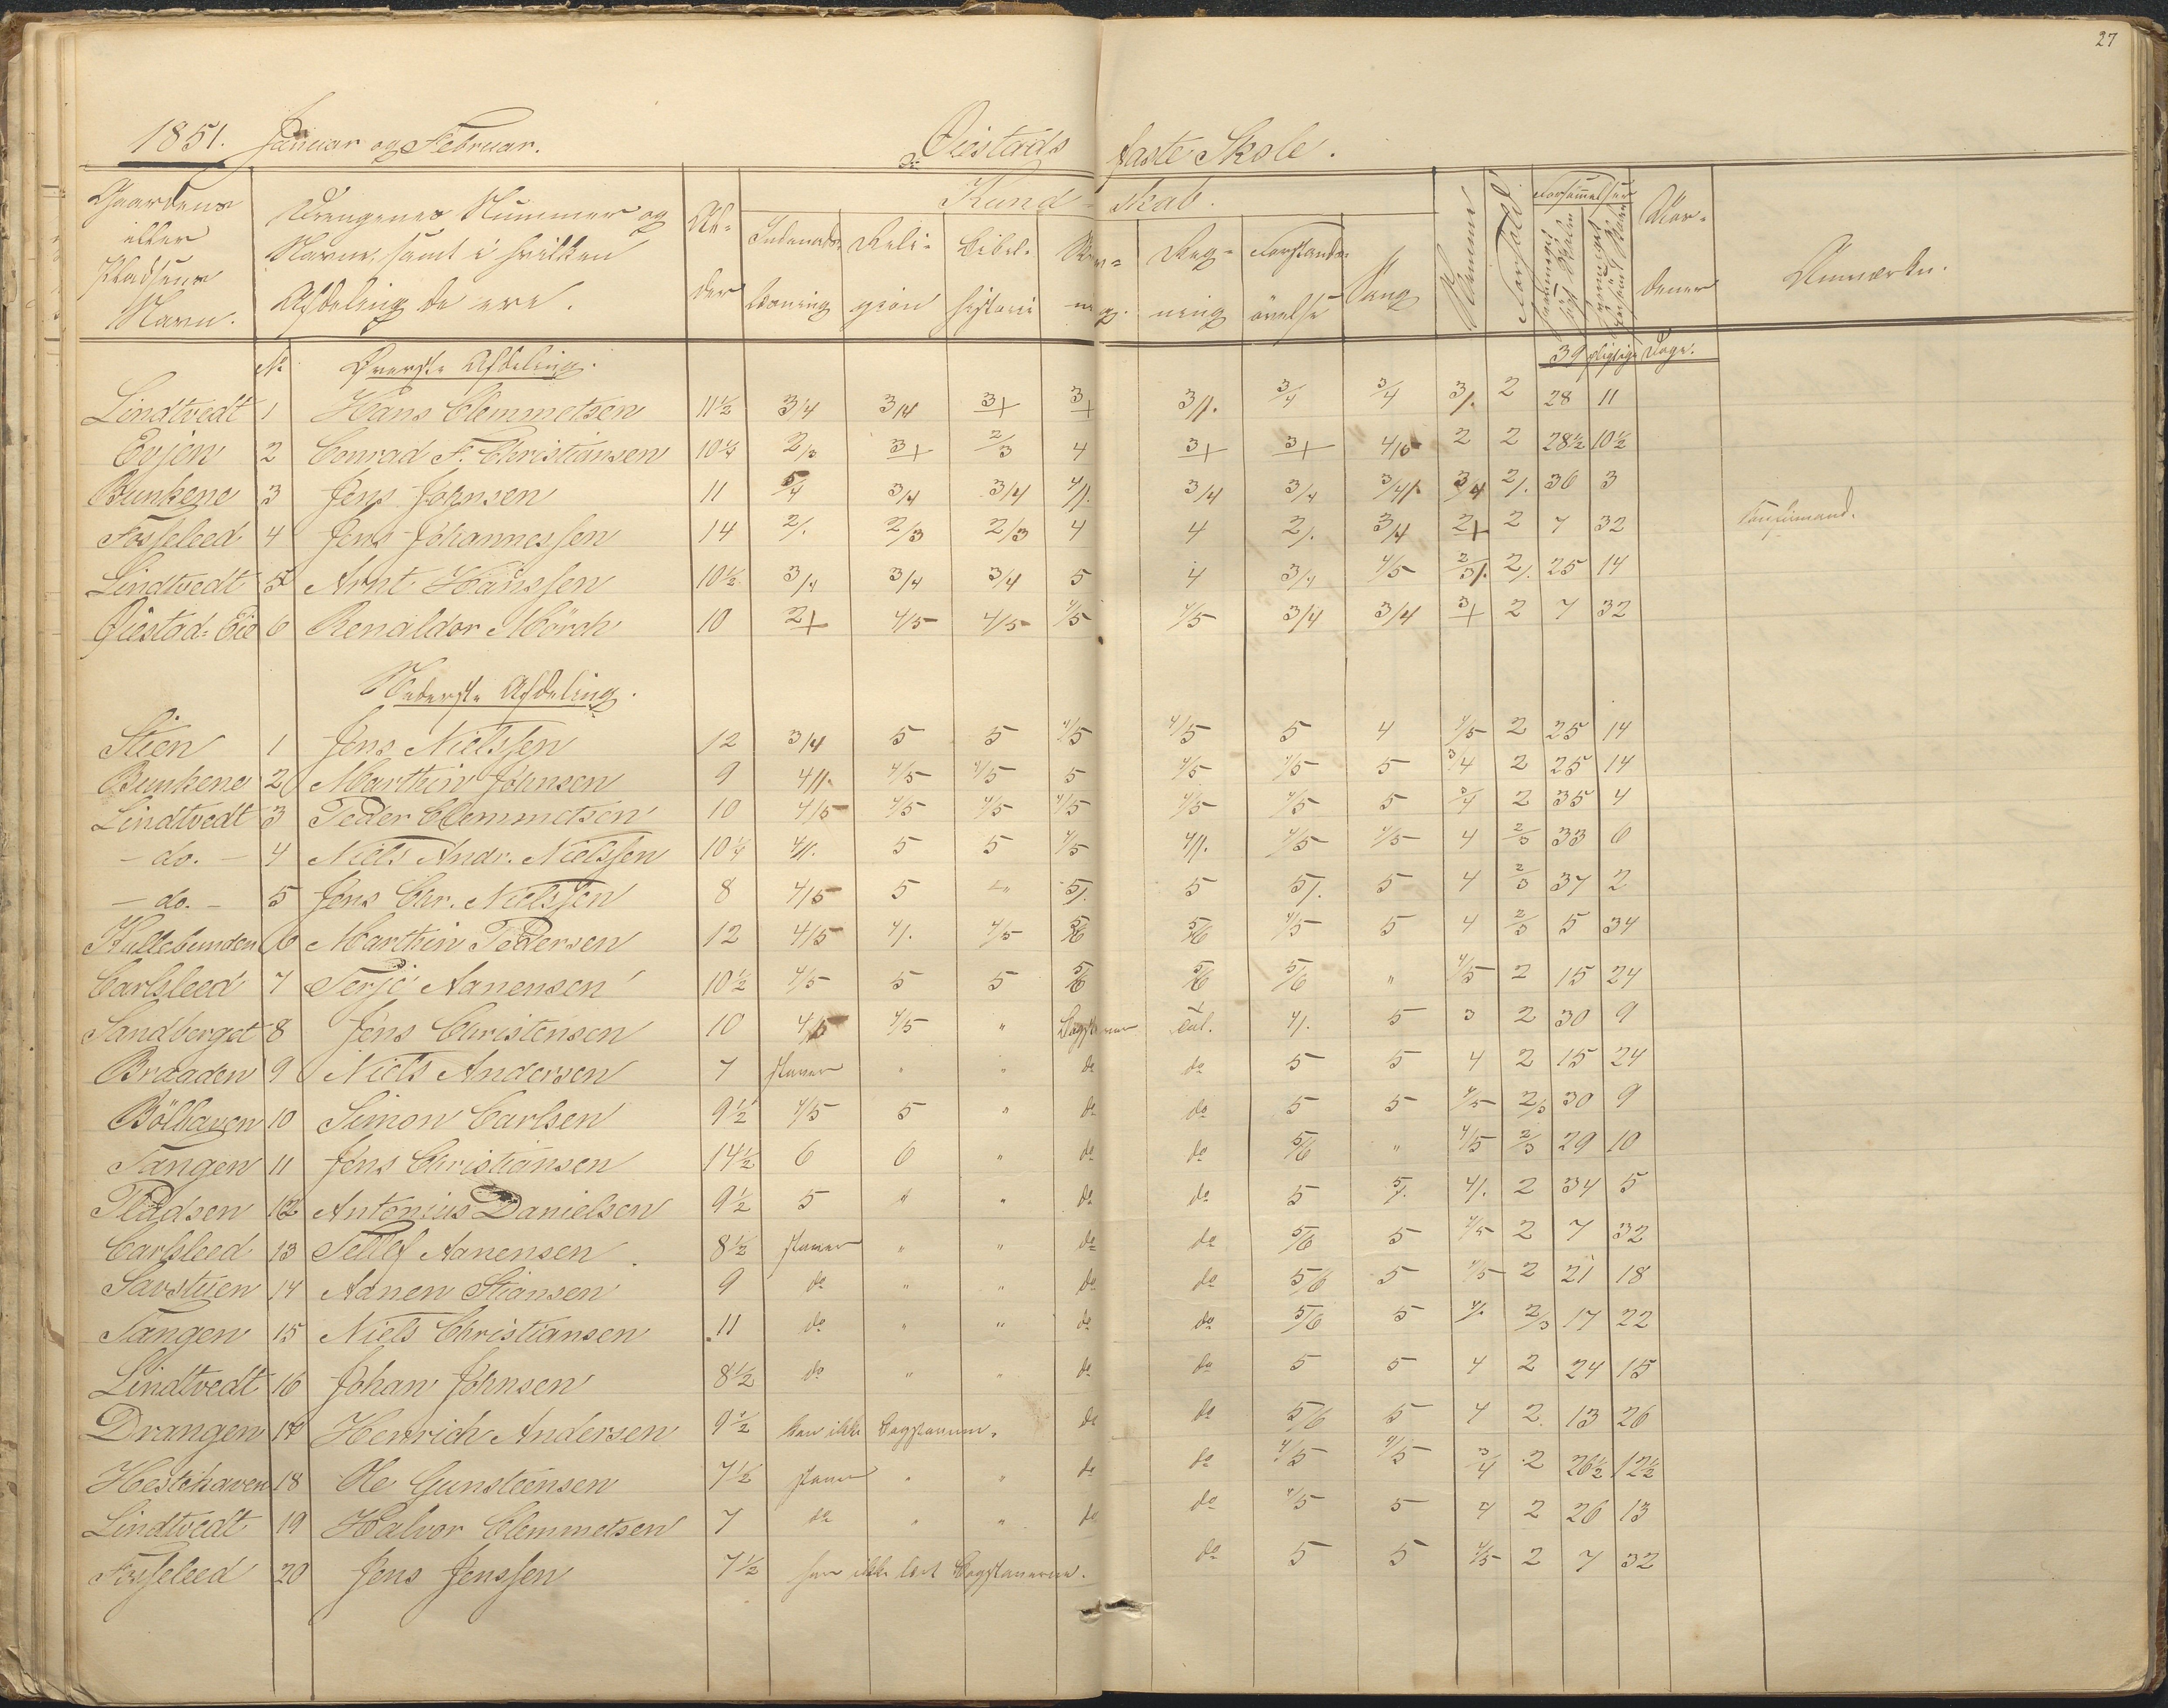 27
1851. Januar og Februar. Øiestads faste Skole.
Gaardens eller Pladsens Navn. Drengenes Nummer og Navne, samt i hvilken Afdeling de ere. Al-der Kund-skab.
Indenads-læsning Reli-gion Bibel-historie Regning Forstands-øvelse Sang Nemme Forhold Forsømmelser Anmærkn.
39 pligtige Dage.
No Øverste Afdeling.
Lindtvedt 1 Hans Clemmetsen 11½ 3/4 3/4 3+ 3+ 3/. 3/4 3/4 3/. 2 28 11
Eyjen 2 Conrad F. Christiansen 10¼ 2/3 3+ 2/3 4 3+ 3+ 4/5 2 2 28½ 10½
Bunkene 3 Jens Johnsen 11 3/4 3/4 4/. 3/4 3/4 3/4 2/. 36 3
Fosseleed 4 Jens Johannessen 14 2/. 2/3 2/3 4 4 2/. 3/4 2+ 2 7 32 Konfirmand.
Lindtvedt 5 Arnt Hanssen 10½ 3/4 3/4 3/4 5 4 3/4 4/5 2/3/. 2/. 25 14
Øiestad-Eie 6 Renaldor Mörch 10 2+ 4/5 4/5 4/5 4/5 3/4 3/4 3+ 2 7 32
Nederste Afdeling.
Stien 1 Jens Nielssen 12 3/4 5 5 4/5 4/5 5 4 4/5 2 25 14
Bunkene 2 Marthin Johnsen 9 4/. 4/5 4/5 5 4/5 4/5 5 3/4 2 25 14
Lindtvedt 3 Peder Clemmetsen 10 4/5 4/5 4/5 4/5 4/5 4/5 5 3/4 2 35 4
- do. - 4 Niels Andr. Nielssen 10¼ 4/. 5 5 4/5 4/. 4/5 4/5 4 2/3 33 6
- do. - 5 Jens Chr. Nielssen 8 4/5 5 5/. 5 5/. 5 4 2/3 37 2
Hullebunden 6 Marthin Pedersen 12 4/5 4/. 4/5 5/6 5/6 4/5 5 4 2/3 5 34
Carlsleed 7 Terje Aanensen 10½ 4/5 5 5 5/6 5/6 5/6 " 4/5 2 15 24
Sandberget 8 Jens Christensen 10 4/5 4/5 " Bogstaver Tal. 4/. 5 3 2 30 9
Braaden 9 Niels Andersen 7 staver " " do do 5 5 4 2 15 24
Bölhagen 10 Simon Carlsen 9½ 4/5 5 " do do 5 5 4/5 2/3 30 9
Tangen 11 Jens Christiansen 14½ 6 6 " do do 5/6 " 4/5 2/3 29 10
Pladsen 12 Antonius Danielsen 9½ 5 " " do do 5 5/. 4/. 2 34 5
Carlsleed 13 Tellef Aanensen 8½ staver " " do do 5/6 5 4/5 2 7 32
Savstuen 14 Adnen Stiansen 9 do " " do do 5/6 5 4/5 2 21 18
Tangen 15 Niels Christiansen 11 do " " do do 5/6 5 4/. 2/3 17 22
Lindtvedt 16 Johan Johnsen 8½ do " " do do 5 5 4 2 24 15
Drangen 17 Henrich Andersen 9½ kan ikke Bogstaverne. do do 5/6 5 4 2 13 26
Hestehaven 18 Ole Gunsteensen 7½ staver " " do do 4/5 4/5 3/4 2 26½ 12½
Lindtvedt 19 Halvor Clemmetsen 7 do " " do do 4/5 5 4 2 26 13
Fosseleed 20 Jens Jenssen 7½ har ikke lært Bogstaverne. do 5 5 4/5 2 7 32